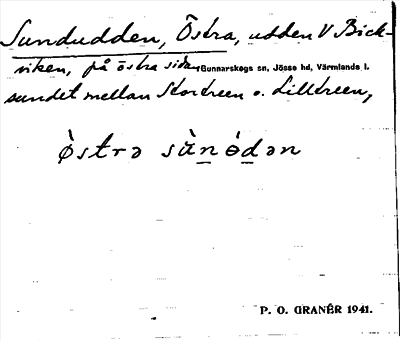 Sundudden, Östra, udden V Bick-
viken, på östra sidan Gunnarskogs sn, Jösse hd, Värmlands l.
sundet mellan Stortreen o. Lilltreen,
ǿstrə sùn ǿdən
P. O. GRANÉR 1941.